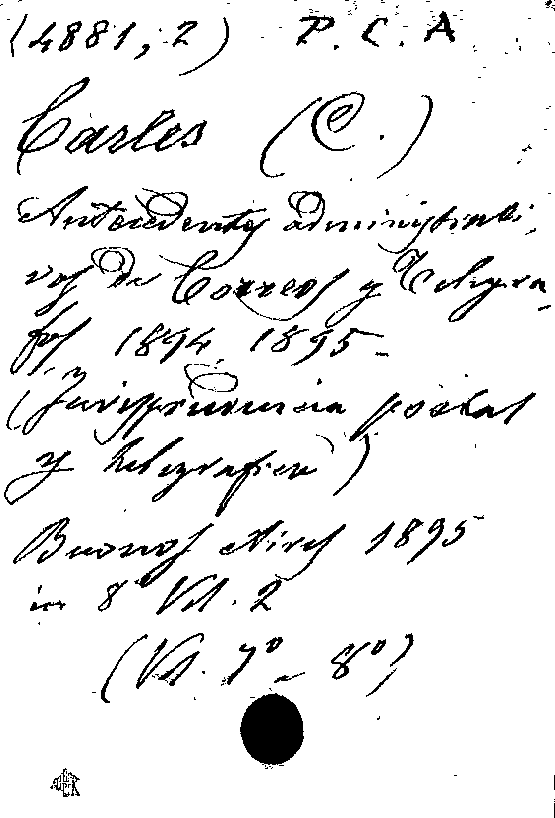 (4881, 2) P. C. A
Carles (C.)
Antecedentes administrati-
vos de Correos y Telégra-
fos, 1894, 1895-
(Jurisprudencia postal
y telegrafica)
Buenos Aires 1895
in 8º Vol. 2
(Vol. 7º - 8º)